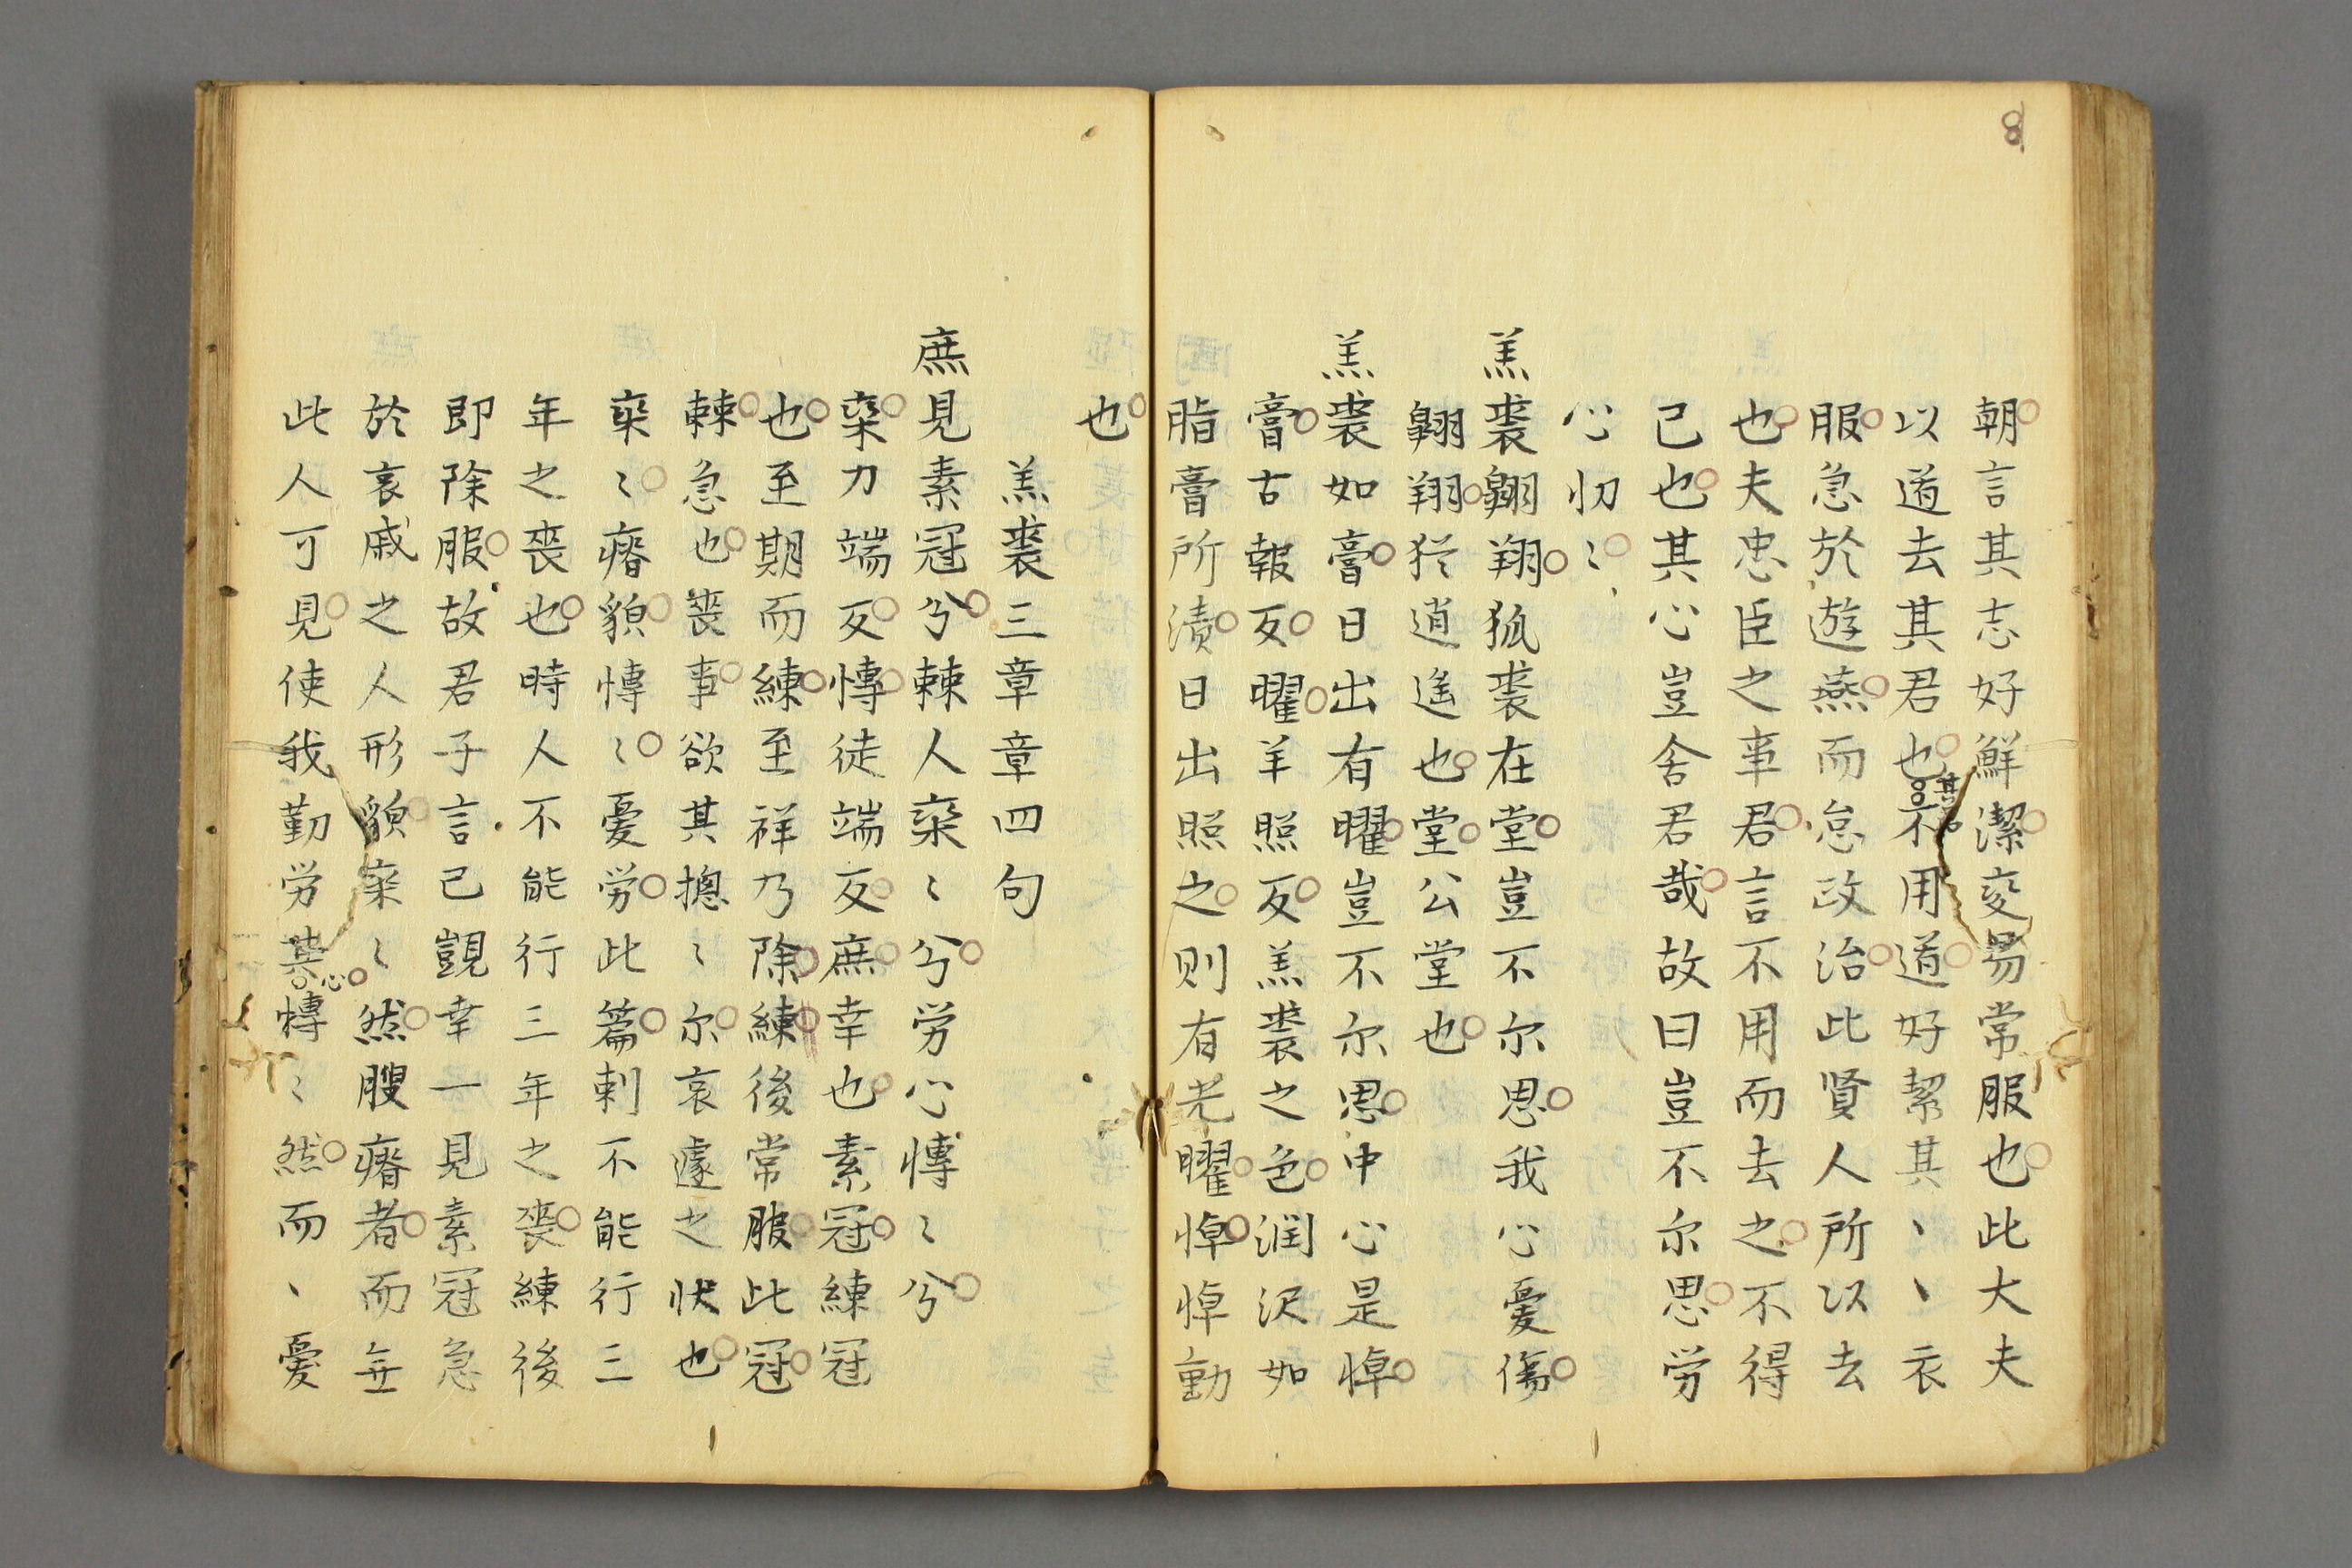 8
朝言其志好鮮潔変易常服也此大夫
以道去其君也其君不用道好絜其ヽヽ衣
服急於遊燕而怠政治此賢人所以去
也夫忠臣之事君言不用而去之不得
已也其心豈舍君哉故曰豈不尓思労
心忉〻
羔裘翺翔狐裘在堂豈不尓思我心憂傷
翺翔犹逍遥也堂公堂也
羔裘如膏日出有曜豈不尓思中心是悼
膏古報反曜羊照反羔裘之色潤沢如
脂膏所漬日出照之則有光曜悼悼動
也
羔裘三章章四句
庶見素冠兮棘人欒〻兮労心慱〻兮
欒力端反慱徒端反庶幸也素冠練冠
也至期而練至祥乃除練後常服此冠
棘急也喪事欲其揔〻尓哀遽之状也
欒〻瘠貌慱〻憂労此篇刺不能行三
年之喪也時人不能行三年之喪練後
即除服故君子言己覬幸一見素冠急
於哀戚之人形貌欒〻然膄瘠者而無
此人可見使我勤労其心慱〻然而ヽ憂